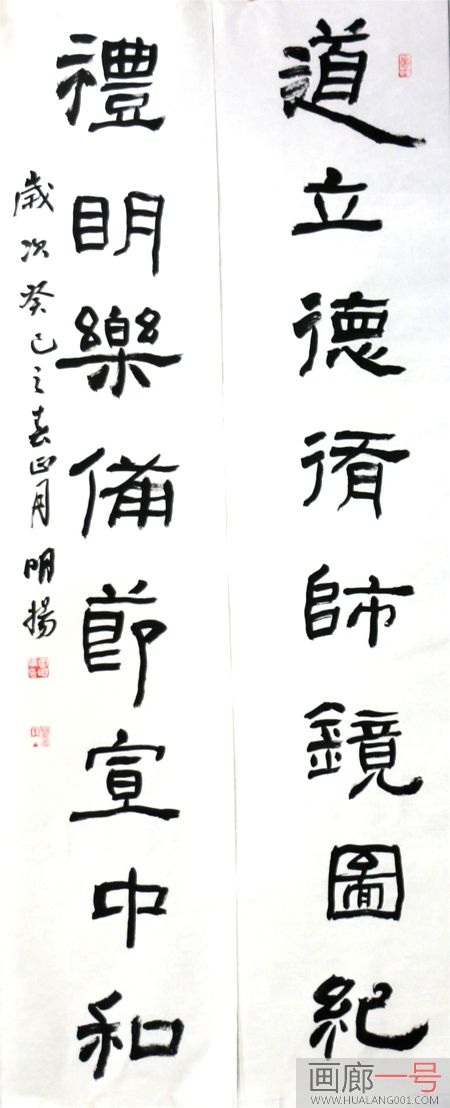 道立德脩師鏡圖紀
禮明樂備節宣中和
歲次癸巳之春正月明揚
画廊一号
WWW.HUALANG001.COM